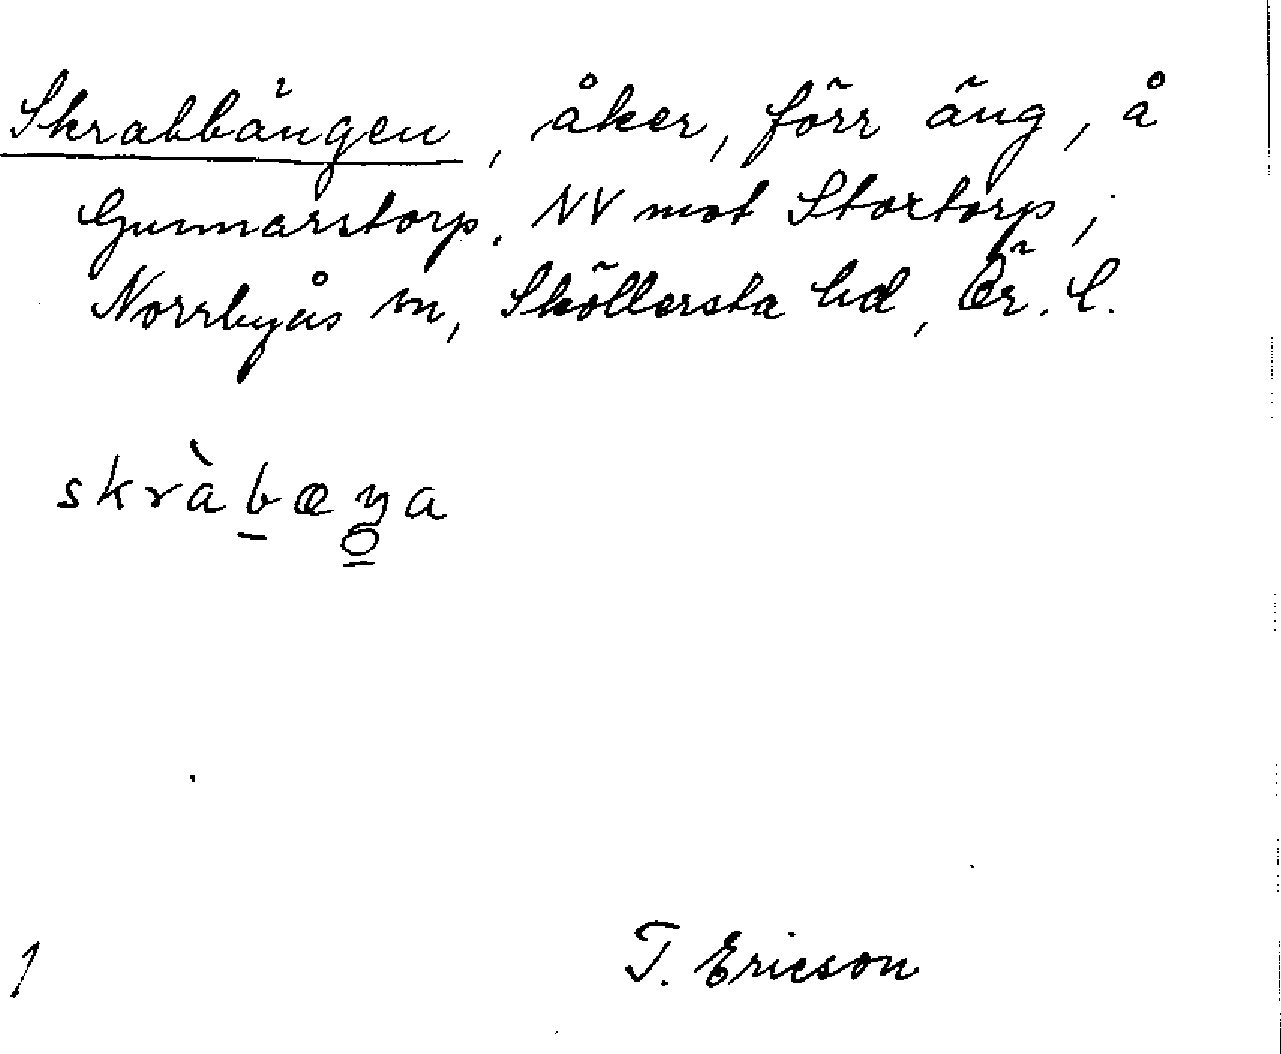 Skrabbängen, åker, förr äng, å
Gunnarstorp, NV mot Stortorp,
Norrbyås sn, Sköllersta hd, Ör. l.
skràbæŋa
1
T. Ericson